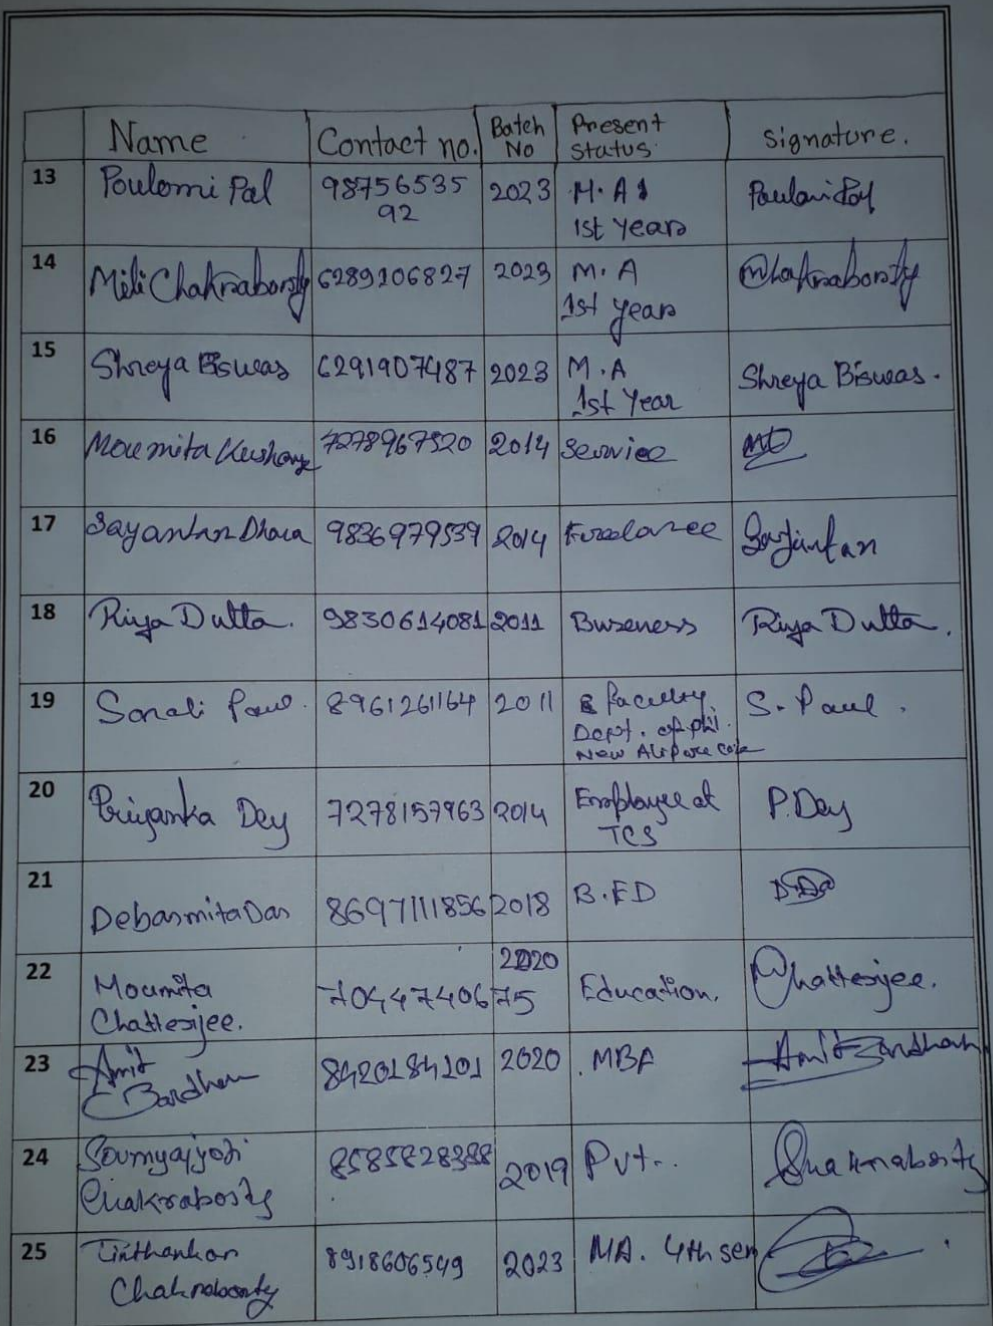 Name Contact no. Batch No Present status Signature.
13 Poulomi Pal 98756535 92 2023 M.A 1st Years Poulomi Pal
14 Mili Chakraborty 6289106827 2023 M.A 1st years Chakraborty
15 Shreya Biswas 6291907487 2023 M.A 1st Year Shreya Biswas.
16 Moumita 7278967520 2014 Service
17 Sayantan Dhara 9836979539 2014 Freelancee Sayantan
18 Riya Dutta. 9830614081 2011 Buseness Riya Dutta.
19 Sonali Paul. 8961261164 2011 faculty Dept. of phi. New Alipore S. Paul.
20 Priyanka Dey 7278157963 2014 Employee at TCS P.Dey
21 Debasmita Das 8697111856 2018 B.ED
22 Moumita Chatterjee. 7044740675 2020 Education. Chatterjee.
23 Amit Bardhan 8420184101 2020 MBA Amit Bardhan
24 Soumyajyoti Chakraborty 8585828388 2019 Pvt.. Chakraborty
25 Tirthankar Chakraborty 8918606549 2023 MA. 4th sem